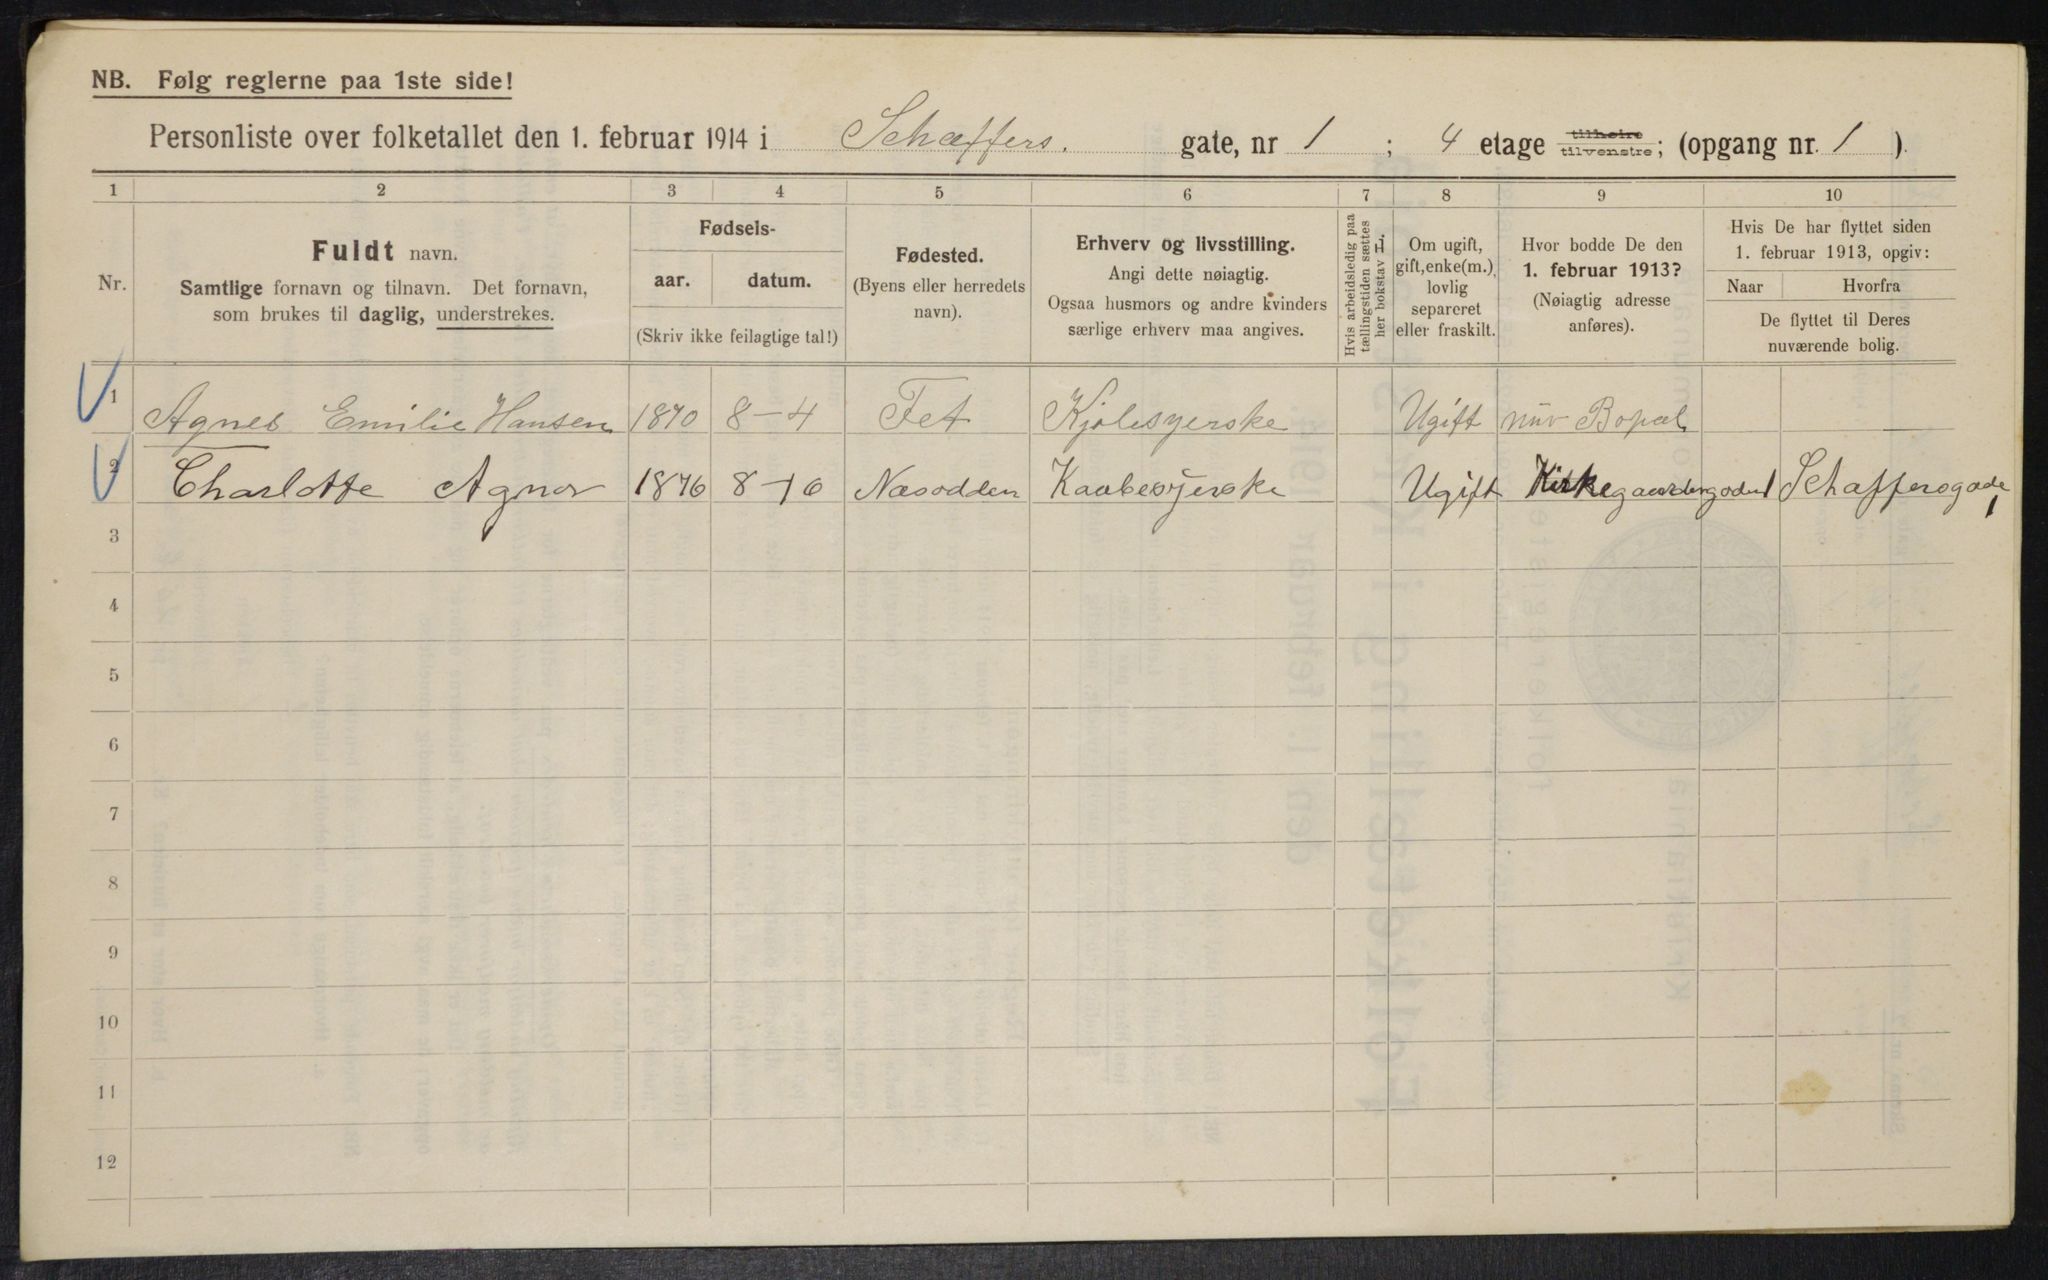 NB. Følg reglerne paa 1ste side!
Personliste over folketallet den 1. februar 1914 i Schæffers. gate, nr 1 ; 4 etage tilhøire tilvenstre; (opgang nr. 1 ).
1 2 3 4 5 6 7 8 9 10
Nr.
Fuldt navn.
Samtlige fornavn og tilnavn. Det fornavn,
som brukes til daglig, understrekes.
Fødsels-
aar. datum.
(Skriv ikke feilagtige tal!)
Fødested.
(Byens eller herredets
navn).
Erhverv og livsstilling.
Angi dette nøiagtig.
Ogsaa husmors og andre kvinders
særlige erhverv maa angives.
Hvis arbeidsledig paa
tællingstiden sættes
her bokstav L.
Om ugift,
gift, enke(m.),
lovlig
separeret
eller fraskilt.
Hvor bodde De den
1. februar 1913?
(Nøiagtig adresse
anføres).
Hvis De har flyttet siden
1. februar 1913, opgiv:
Naar Hvorfra
De flyttet til Deres
nuværende bolig.
1 Agnes Emilie Hansen 1870 8-4 Fet Kjolesyerske Ugift nuv Bopæl
2 Charlotte Agnor 1876 8-10 Næsodden Kaabesyerske Ugift Schaffersgade 1
3
4
5
6
7
8
9
10
11
12